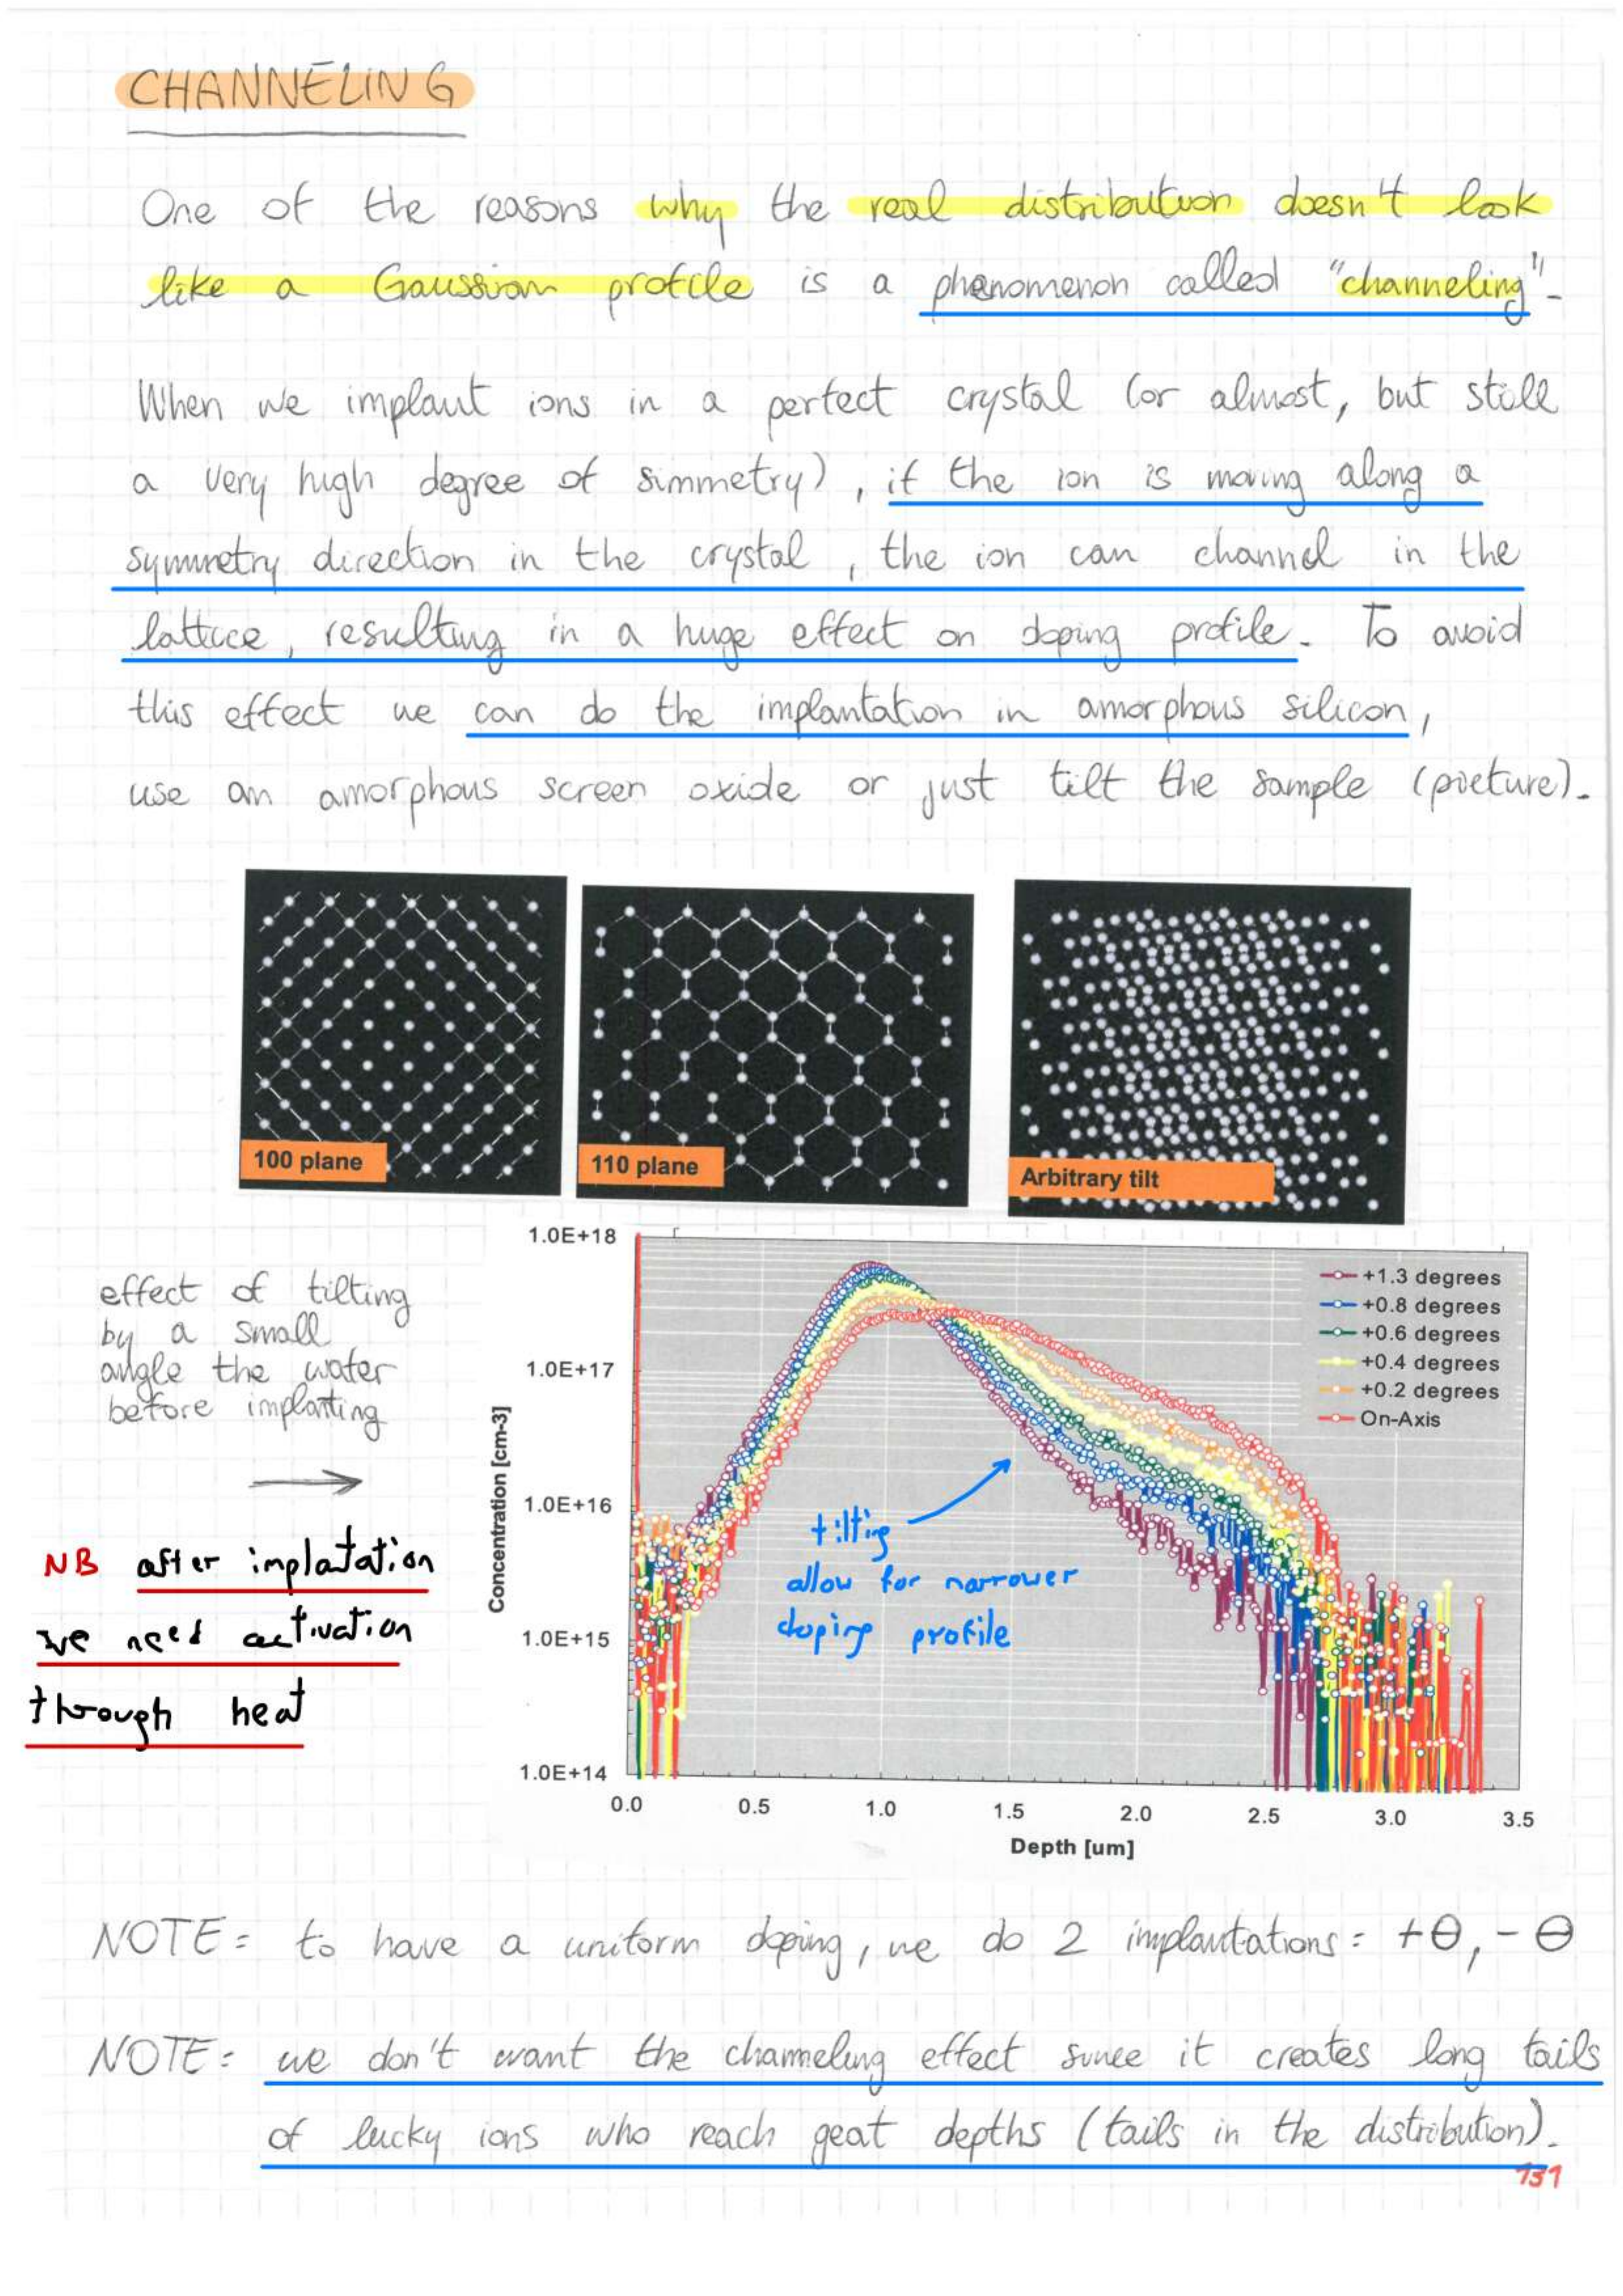 CHANNELING
One of the reasons why the real distribution doesn't look
like a Gaussian profile is a phenomenon called "channeling".
When we implant ions in a perfect crystal (or almost, but still
a very high degree of simmetry), if the ion is moving along a
symmetry direction in the crystal, the ion can channel in the
lattice, resulting in a huge effect on doping profile. To avoid
this effect we can do the implantation in amorphous silicon,
use an amorphous screen oxide or just tilt the sample (picture).
100 plane
110 plane
Arbitrary tilt
effect of tilting
by a small
angle the water
before implanting
NB after implatation
we need activation
through heat
1.0E+18
1.0E+17
1.0E+16
1.0E+15
1.0E+14
Concentration [cm-3]
+1.3 degrees
+0.8 degrees
+0.6 degrees
+0.4 degrees
+0.2 degrees
On-Axis
tilting
allow for narrower
doping profile
0.0 0.5 1.0 1.5 2.0 2.5 3.0 3.5
Depth [um]
NOTE: to have a uniform doping, we do 2 implantations: +θ, -θ
NOTE: we don't want the channeling effect since it creates long tails
of lucky ions who reach geat depths (tails in the distribution).
131